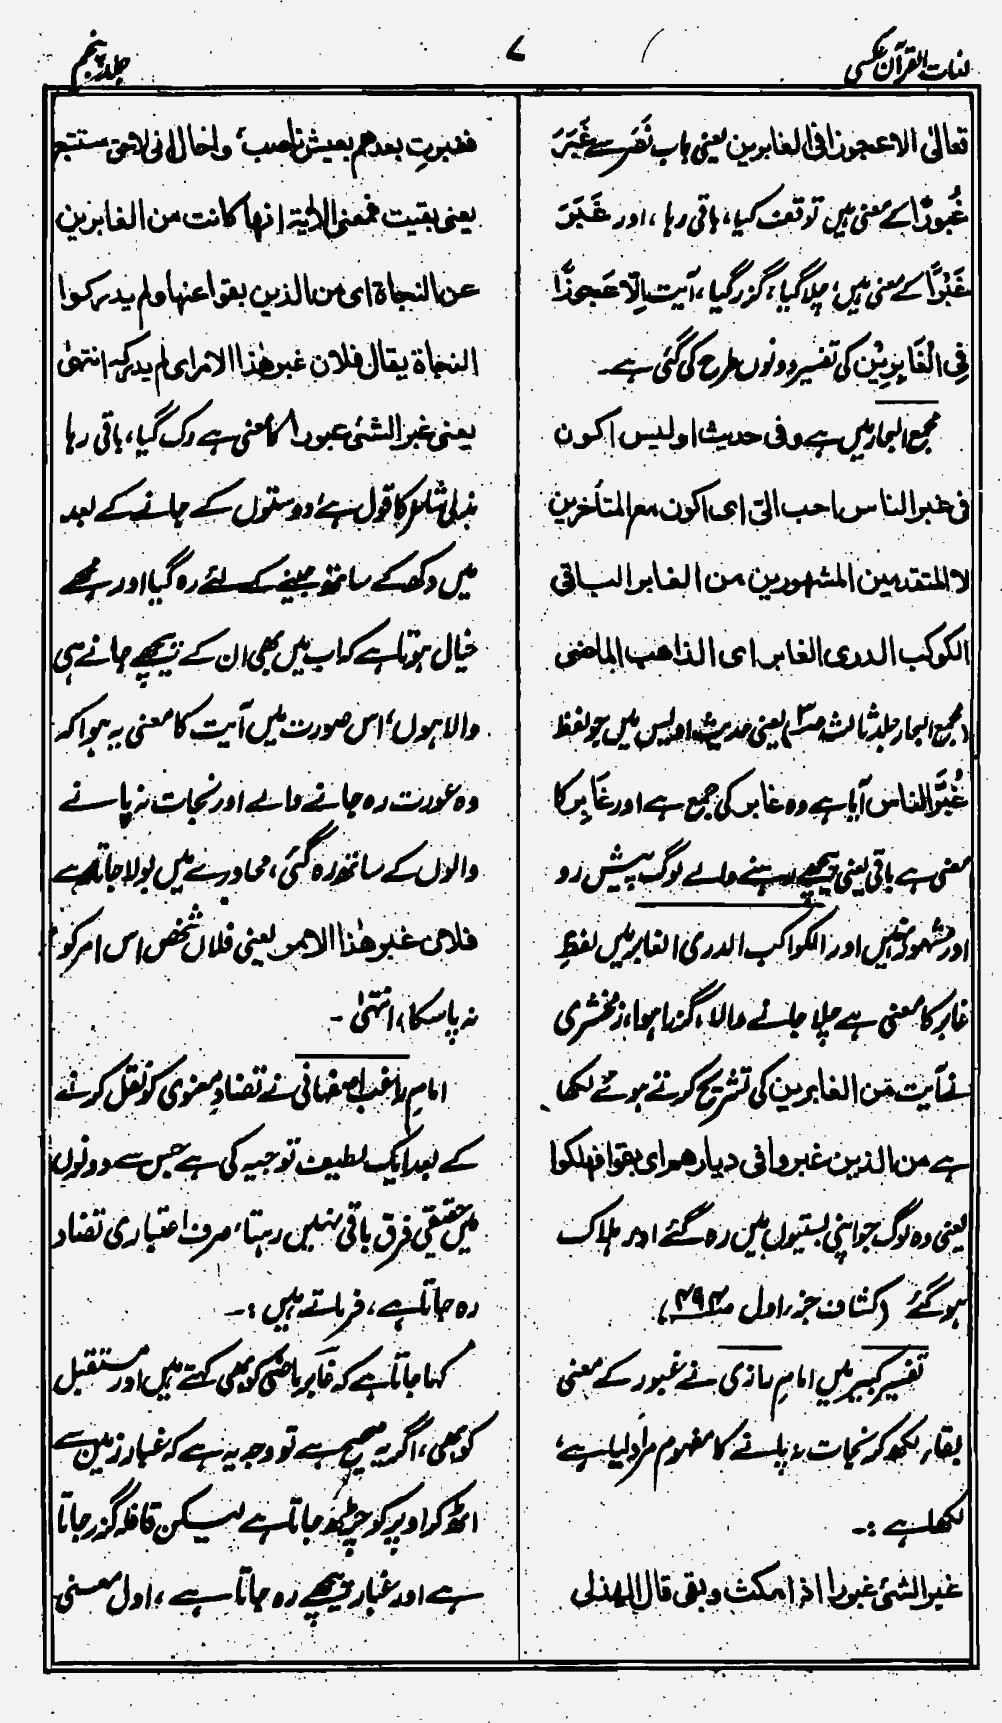 لغات القرآن عکسی
۷
جلد پنجم
تعالیٰ الا عجوزا فی الغابرین یعنی باب نَصَرَ سے غَبَرَ
غُبُورًا کے معنی ہیں توقف کیا، باقی رہا، اور غَبَرَ
غَبْرًا کے معنی ہیں، چلا گیا، گزر گیا، آیت اِلَّا عَجُوزًا
فِی الْغَابِرِیْنَ کی تفسیر دونوں طرح کی گئی ہے۔
مجمع البحار میں ہے وفی حدیث اولیس اکون
فی غبر الناس احب الیّ ای اکون مع المتأخرین
لا المتقدمین المشہورین من الغابر الباقی
الکوکب الدری الغابر ای الذاھب الماضی
(مجمع البحار جلد ثالث ص۳) یعنی حدیث اویس میں جو لفظ
غُبَّر الناس آیا ہے وہ غابر کی جمع ہے اور غَابِر کا
معنی ہے باقی یعنی پیچھے رہنے والے لوگ پیش رو
اور مشہور نہیں اور الکواکب الدری الغابر میں لفظِ
غابر کا معنی ہے چلا جانے والا، گزرا ہوا، زمخشری
نے آیت مَن الغابرین کی تشریح کرتے ہوئے لکھا
ہے من الذین غبروا فی دیارھم ای بقوا فھلکوا
یعنی وہ لوگ جو اپنی بستیوں میں رہ گئے اور ہلاک
ہو گئے (کشاف جزر اول ص۴۹۴)،
تفسیر کبیر میں امام رازی نے غبور کے معنی
بقار لکھ کر نجات نہ پانے کا مفہوم مراد لیا ہے،
لکھا ہے :۔
غبر الشئ غبورا اذا مکث وبقی قال الھذلی
فغبرتِ بعدھم بعیش ناصب، واخال انی لاحق مستتبع
یعنی بقیت فمعنی الاٰیۃ انھا کانت من الغابرین
عن النجاۃ ای من الذین بقوا عنھا ولم یدرکوا
النجاۃ یقال فلان غبر ھٰذا الامر ای لم یدرکہ انتھیٰ
یعنی غبر الشئ غبورا کا معنی ہے رک گیا، باقی رہا
ہذلی شاعر کا قول ہے، دوستوں کے جانے کے بعد
میں دکھ کے ساتھ جینے کے لئے رہ گیا اور مجھے
خیال ہوتا ہے کہ اب میں بھی ان کے پیچھے جانے ہی
والا ہوں، اس صورت میں آیت کا معنی یہ ہوا کہ
وہ عورت رہ جانے والے اور نجات نہ پانے
والوں کے ساتھ رہ گئی، محاورے میں بولا جاتا ہے
فلان غبر ھٰذا الامر یعنی فلاں شخص اس امر کو
نہ پاسکا، انتہیٰ۔
امامِ راغب اصفہانی نے تضادِ معنوی کو نقل کرنے
کے بعد ایک لطیف توجیہ کی ہے جس سے دونوں
میں حقیقی فرق باقی نہیں رہتا، صرف اعتباری تضاد
رہ جاتا ہے، فرماتے ہیں :۔
کہا جاتا ہے کہ غابر ماضی کو بھی کہتے ہیں اور مستقبل
کو بھی، اگر یہ صحیح ہے تو وجہ یہ ہے کہ غبار زمین سے
اٹھ کر اوپر کو چڑھ جاتا ہے لیکن قافلہ گزر جاتا
ہے اور غبار پیچھے رہ جاتا ہے، اول معنی